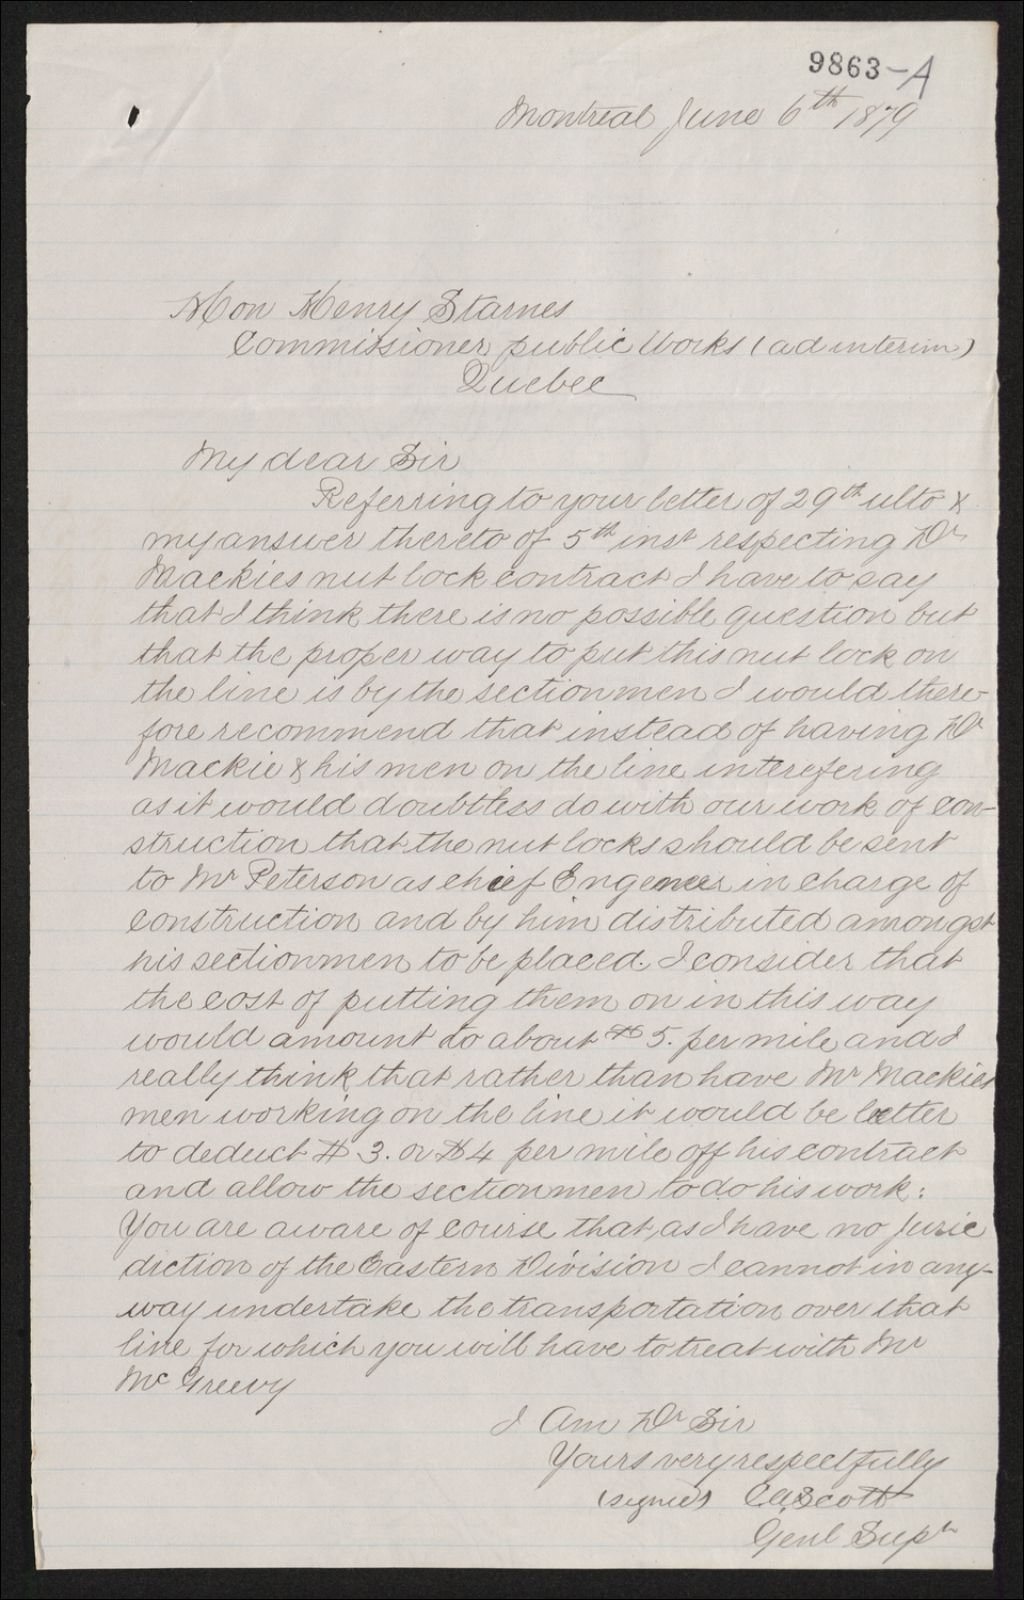 9863-A
Montreal June 6th 1879
Hon Henry Starnes
Commissioner public Works (ad interim)
Quebec
My dear Sir
Referring to your letter of 29th ulto &
my answer thereto of 5th inst respecting Dr
Mackies nut lock contract I have to say
that I think there is no possible question but
that the proper way to put this nut lock on
the line is by the sectionmen I would there-
fore recommend that instead of having Dr
Mackie & his men on the line interefering
as it would doubtless do with our work of con-
struction that the nut locks should be sent
to Mr Peterson as chief Engeneer in charge of
construction and by him distributed amongst
his sectionmen to be placed. I consider that
the cost of putting them on in this way
would amount to about $5. per mile and I
really think that rather than have Mr Mackies
men working on the line it would be better
to deduct $3. or $4 per mile off his contract
and allow the sectionmen to do his work:
You are aware of course that, as I have no Juris
diction of the Eastern Division I cannot in any-
way undertake the transportation over that
line for which you will have to treat with Mr
McGreevy
I Am Dr Sir
Yours very respectfully
(signed) CA Scott
Genl Supt